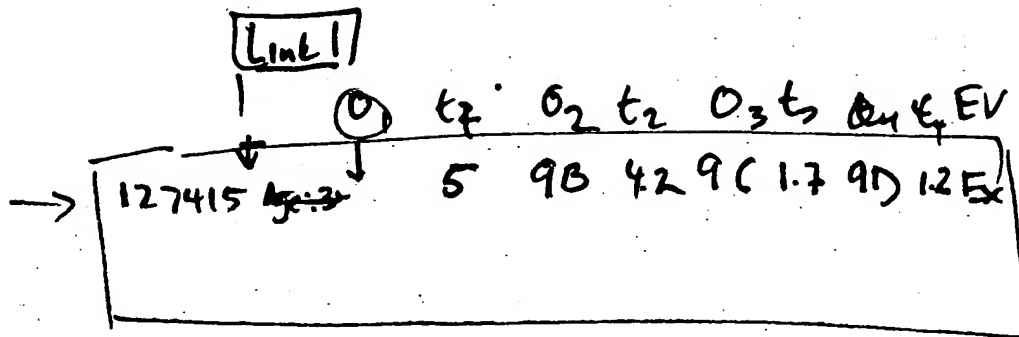 Link 1
O1 t2 O2 t2 O3 t3 t4 EV
127415 5 9B 4.2 9C 1.7 9D 1.2 Ex